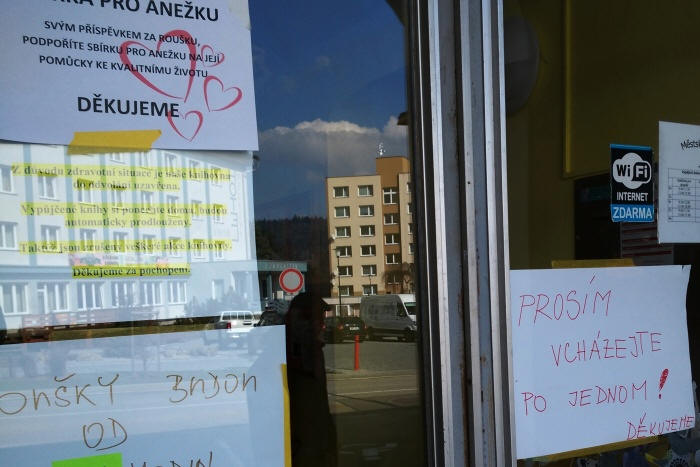 PRO ANEŽKU
SVÝM PŘÍSPĚVKEM ZA ROUŠKU,
PODPOŘÍTE SBÍRKU PRO ANEŽKU NA JEJÍ
POMŮCKY KE KVALITNÍMU ŽIVOTU
DĚKUJEME
Z důvodu zdravotní situace je naše knihovna
do odvolání uzavřena.
Vypůjčené knihy si ponechte doma, budou
automaticky prodlouženy.
Také jsou zrušeny veškeré akce knihovny.
Děkujeme za pochopení.
OD
WiFi
INTERNET
ZDARMA
PROSÍM
VCHÁZEJTE
PO JEDNOM!
DĚKUJEME